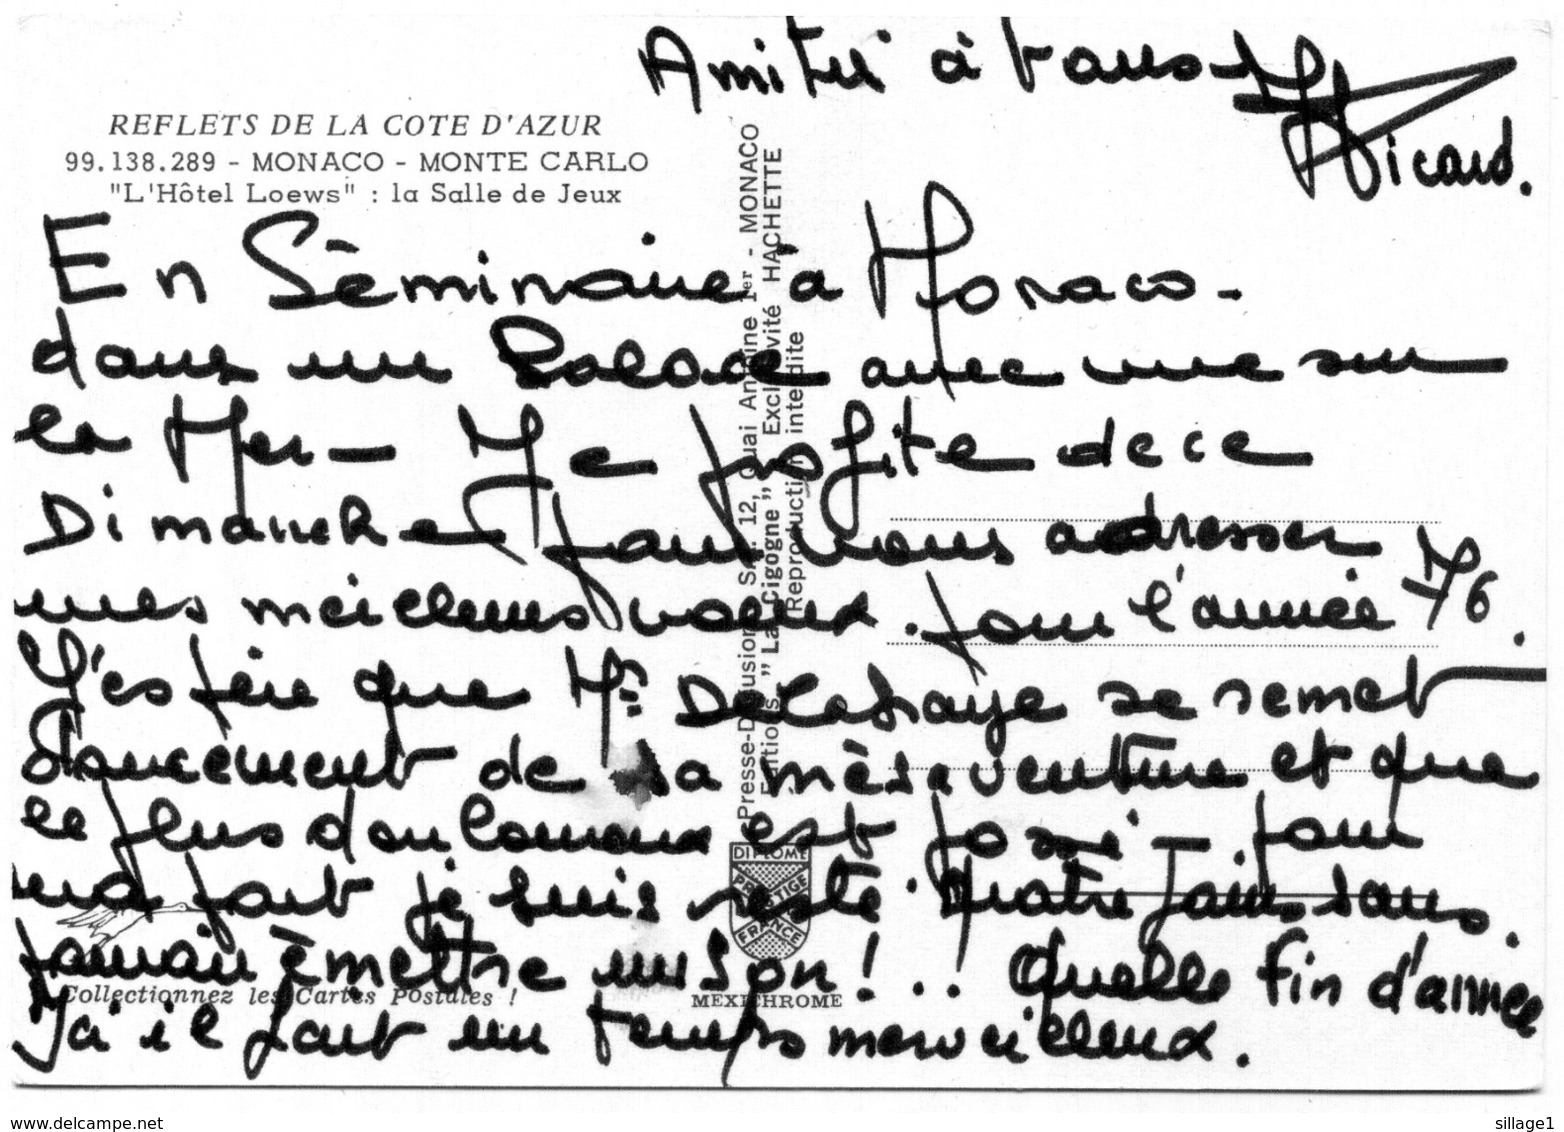 Amitié à tous
Picard.
REFLETS DE LA COTE D'AZUR
99.138.289 - MONACO - MONTE CARLO
"L'Hôtel Loews" : la Salle de Jeux
En Séminaire à Monaco -
dans un Palace avec vue sur
la Mer - Je profite de ce
Dimanche pour vous adresser
mes meilleurs voeux. pour l'année 76.
J'espère que Mr Delahaye se remet
doucement de sa mésaventure et que
le plus douloureux est passé - pour
ma part je suis resté quatre jours sans
pouvoir émettre un son ! .. Quelle fin d'année
Ici il fait un temps merveilleux.
Presse-Diffusion S.A. 12, Quai Antoine 1er - MONACO
Editions "La Cigogne" Exclusivité HACHETTE
Reproduction interdite
DIPLOME
PRESTIGE
FRANCE
Collectionnez les Cartes Postales !
MEXICHROME
www.delcampe.net
sillage1